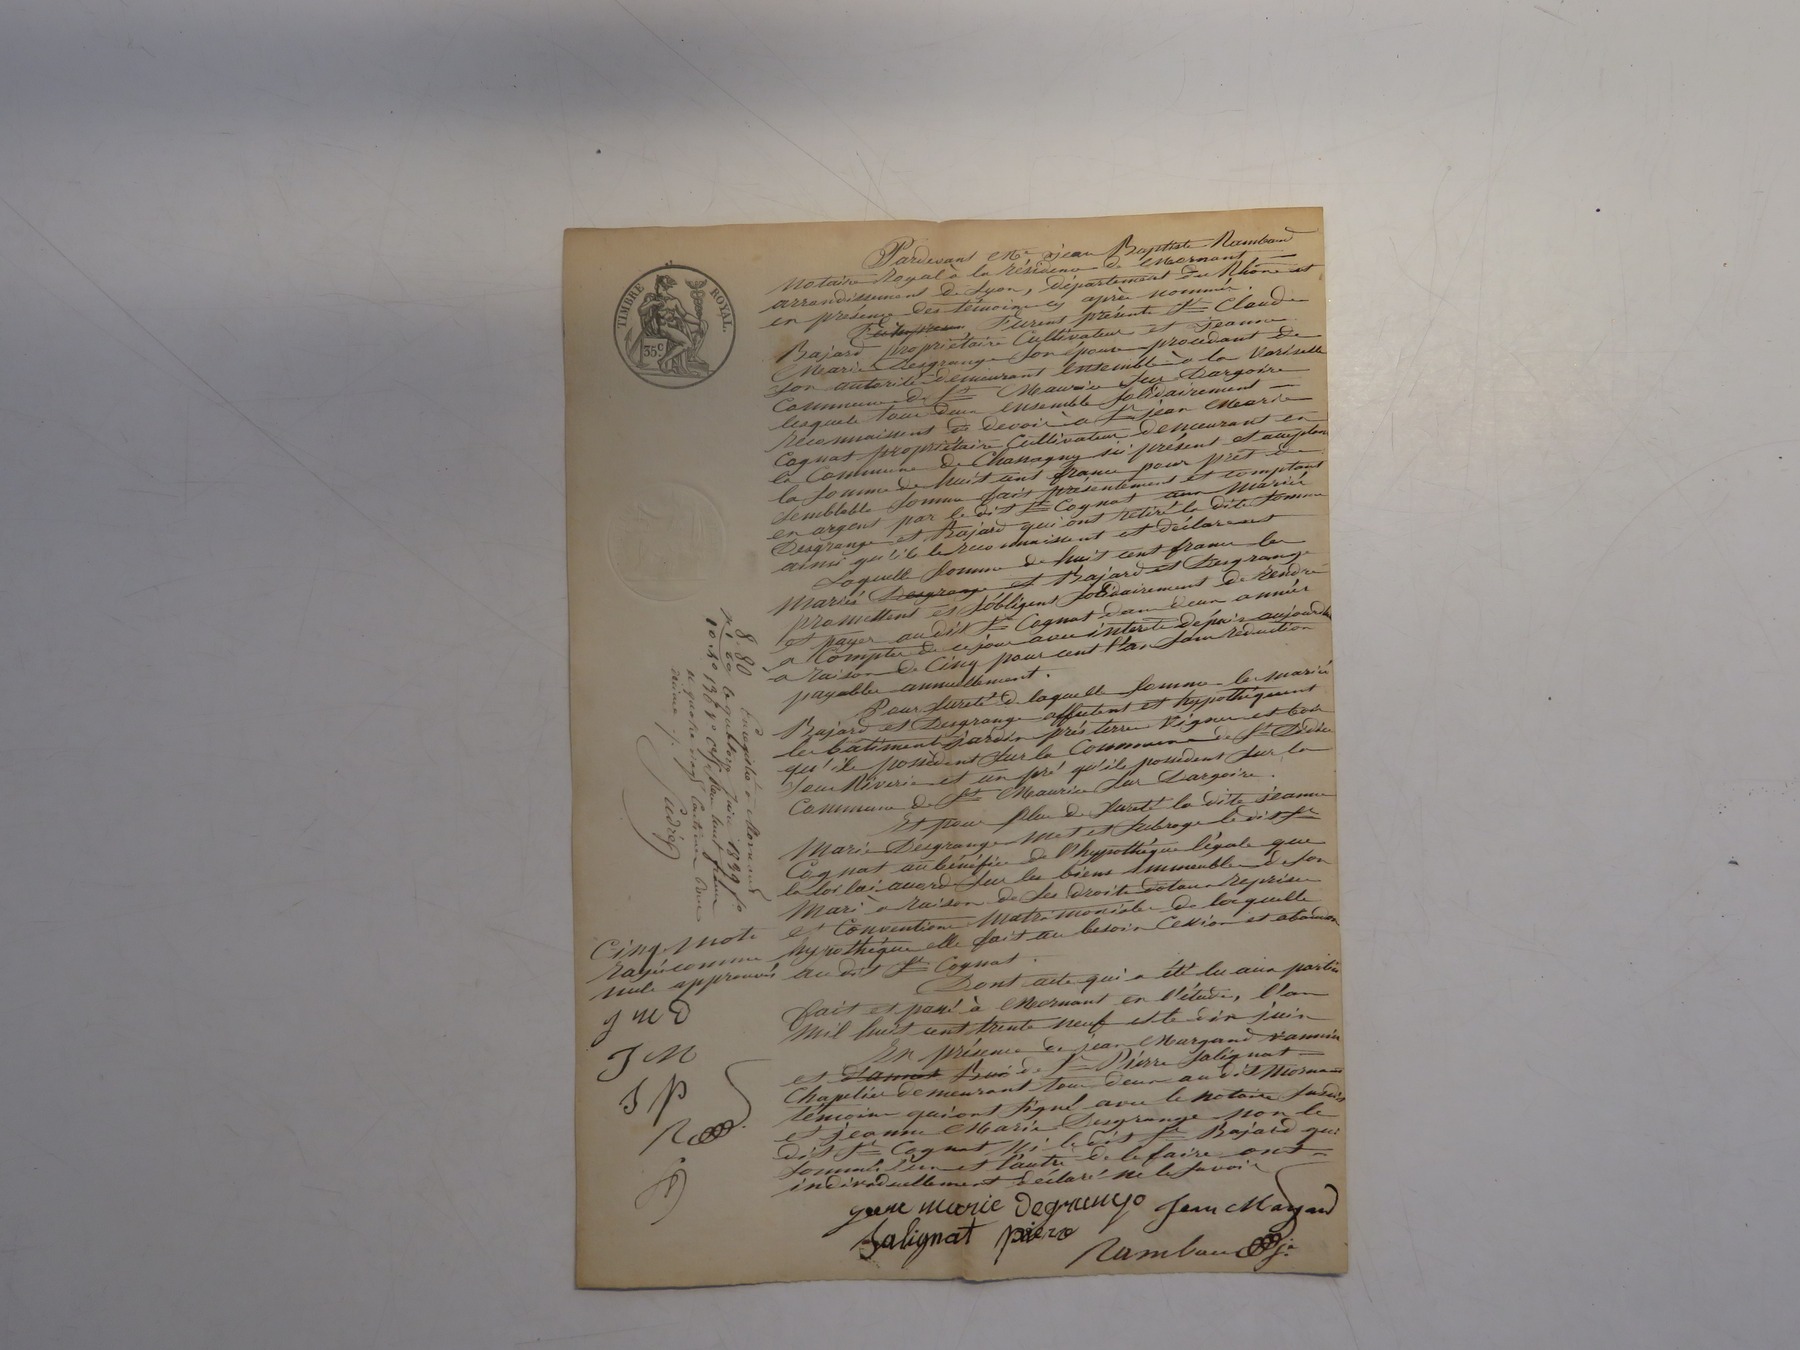 TIMBRE ROYAL.
35c
Pardevant Me jean Baptiste Rambaud
Notaire Royal à la résidence de Mornant
arrondissement de Lyon, département du Rhône et
en présence des témoins cy après nommés.
Furent présents Sr Claude
Bajard propriétaire Cultivateur et Jeanne
Marie Desgrange Son épouse procédant de
Son autorité demeurant ensemble à la Variselle
Commune de St Maurice Sur Dargoire
lesquels tous deux ensemble Solidairement
reconnaissent de devoir à Sr jean Marie
Cognat propriétaire Cultivateur demeurant en
la Commune de Chassagny ici présent et acceptant
la Somme de huit cens francs pour prêt de
Semblable Somme fait présentement et comptant
en argent par le dit Sr Cognat aux Mariés
Desgrange et Bajard qui ont retiré la dite Somme
ainsi qu'ils le reconnaissent et déclarent
Laquelle Somme de huit cent francs les
Mariés Desgrange et Bajard et Desgrange
promettent et S'obligent Solidairement de rendre
et payer au dit Sr Cognat dans deux années
a Compter de ce jour avec intérêts depuis aujourdhui
à raison de Cinq pour cent l'an Sans réduction
payables annuellement.
Pour Sureté de laquelle Somme les mariés
Bajard et Desgrange affectent et hypothéquent
les batiments jardin prés terres Vignes et bois
qu'ils possèdent Sur la Commune de St Didier
Sous Riverie et un pré qu'ils possèdent Sur la
Commune de St Maurice Sur Dargoire.
Et pour plus de Sureté la dite Jeanne
Marie Desgrange met et Subroge le dit Sr
Cognat au bénéfice de l'hypothèque légale que
la loi lui accorde Sur les biens Immeubles de Son
Mari à raison de Ses droits dotaux reprises
et Conventions Matrimoniales de laquelle
hypothèque elle fait au besoin Cession et abandon
au dit Sr Cognat.
Dont acte qui a été lu aux parties
fait et passé à Mornant en l'étude, l'an
Mil huit cent trente neuf et le dix juin
En présence de jean Margand Vannier
et de Sr Pierre Salignat
Chapelier demeurant tous deux au dit Mornant
témoins qui ont Signé avec le notaire Susdit
et jeanne Marie Desgrange non le
dit Sr Cognat Ni le dit Sr Bajard qui
Sommés l'un et l'autre de le faire ont
individuellement déclaré ne le Savoir
jeane marie Degrange Jean Margand
Salignat piere
Rambaud jne
Cinq mots
rayés comme
nuls approuvés
J M D
J M
S P
R
8.80
Enregistré à Mornant
le quatorze Juin 1839 fo